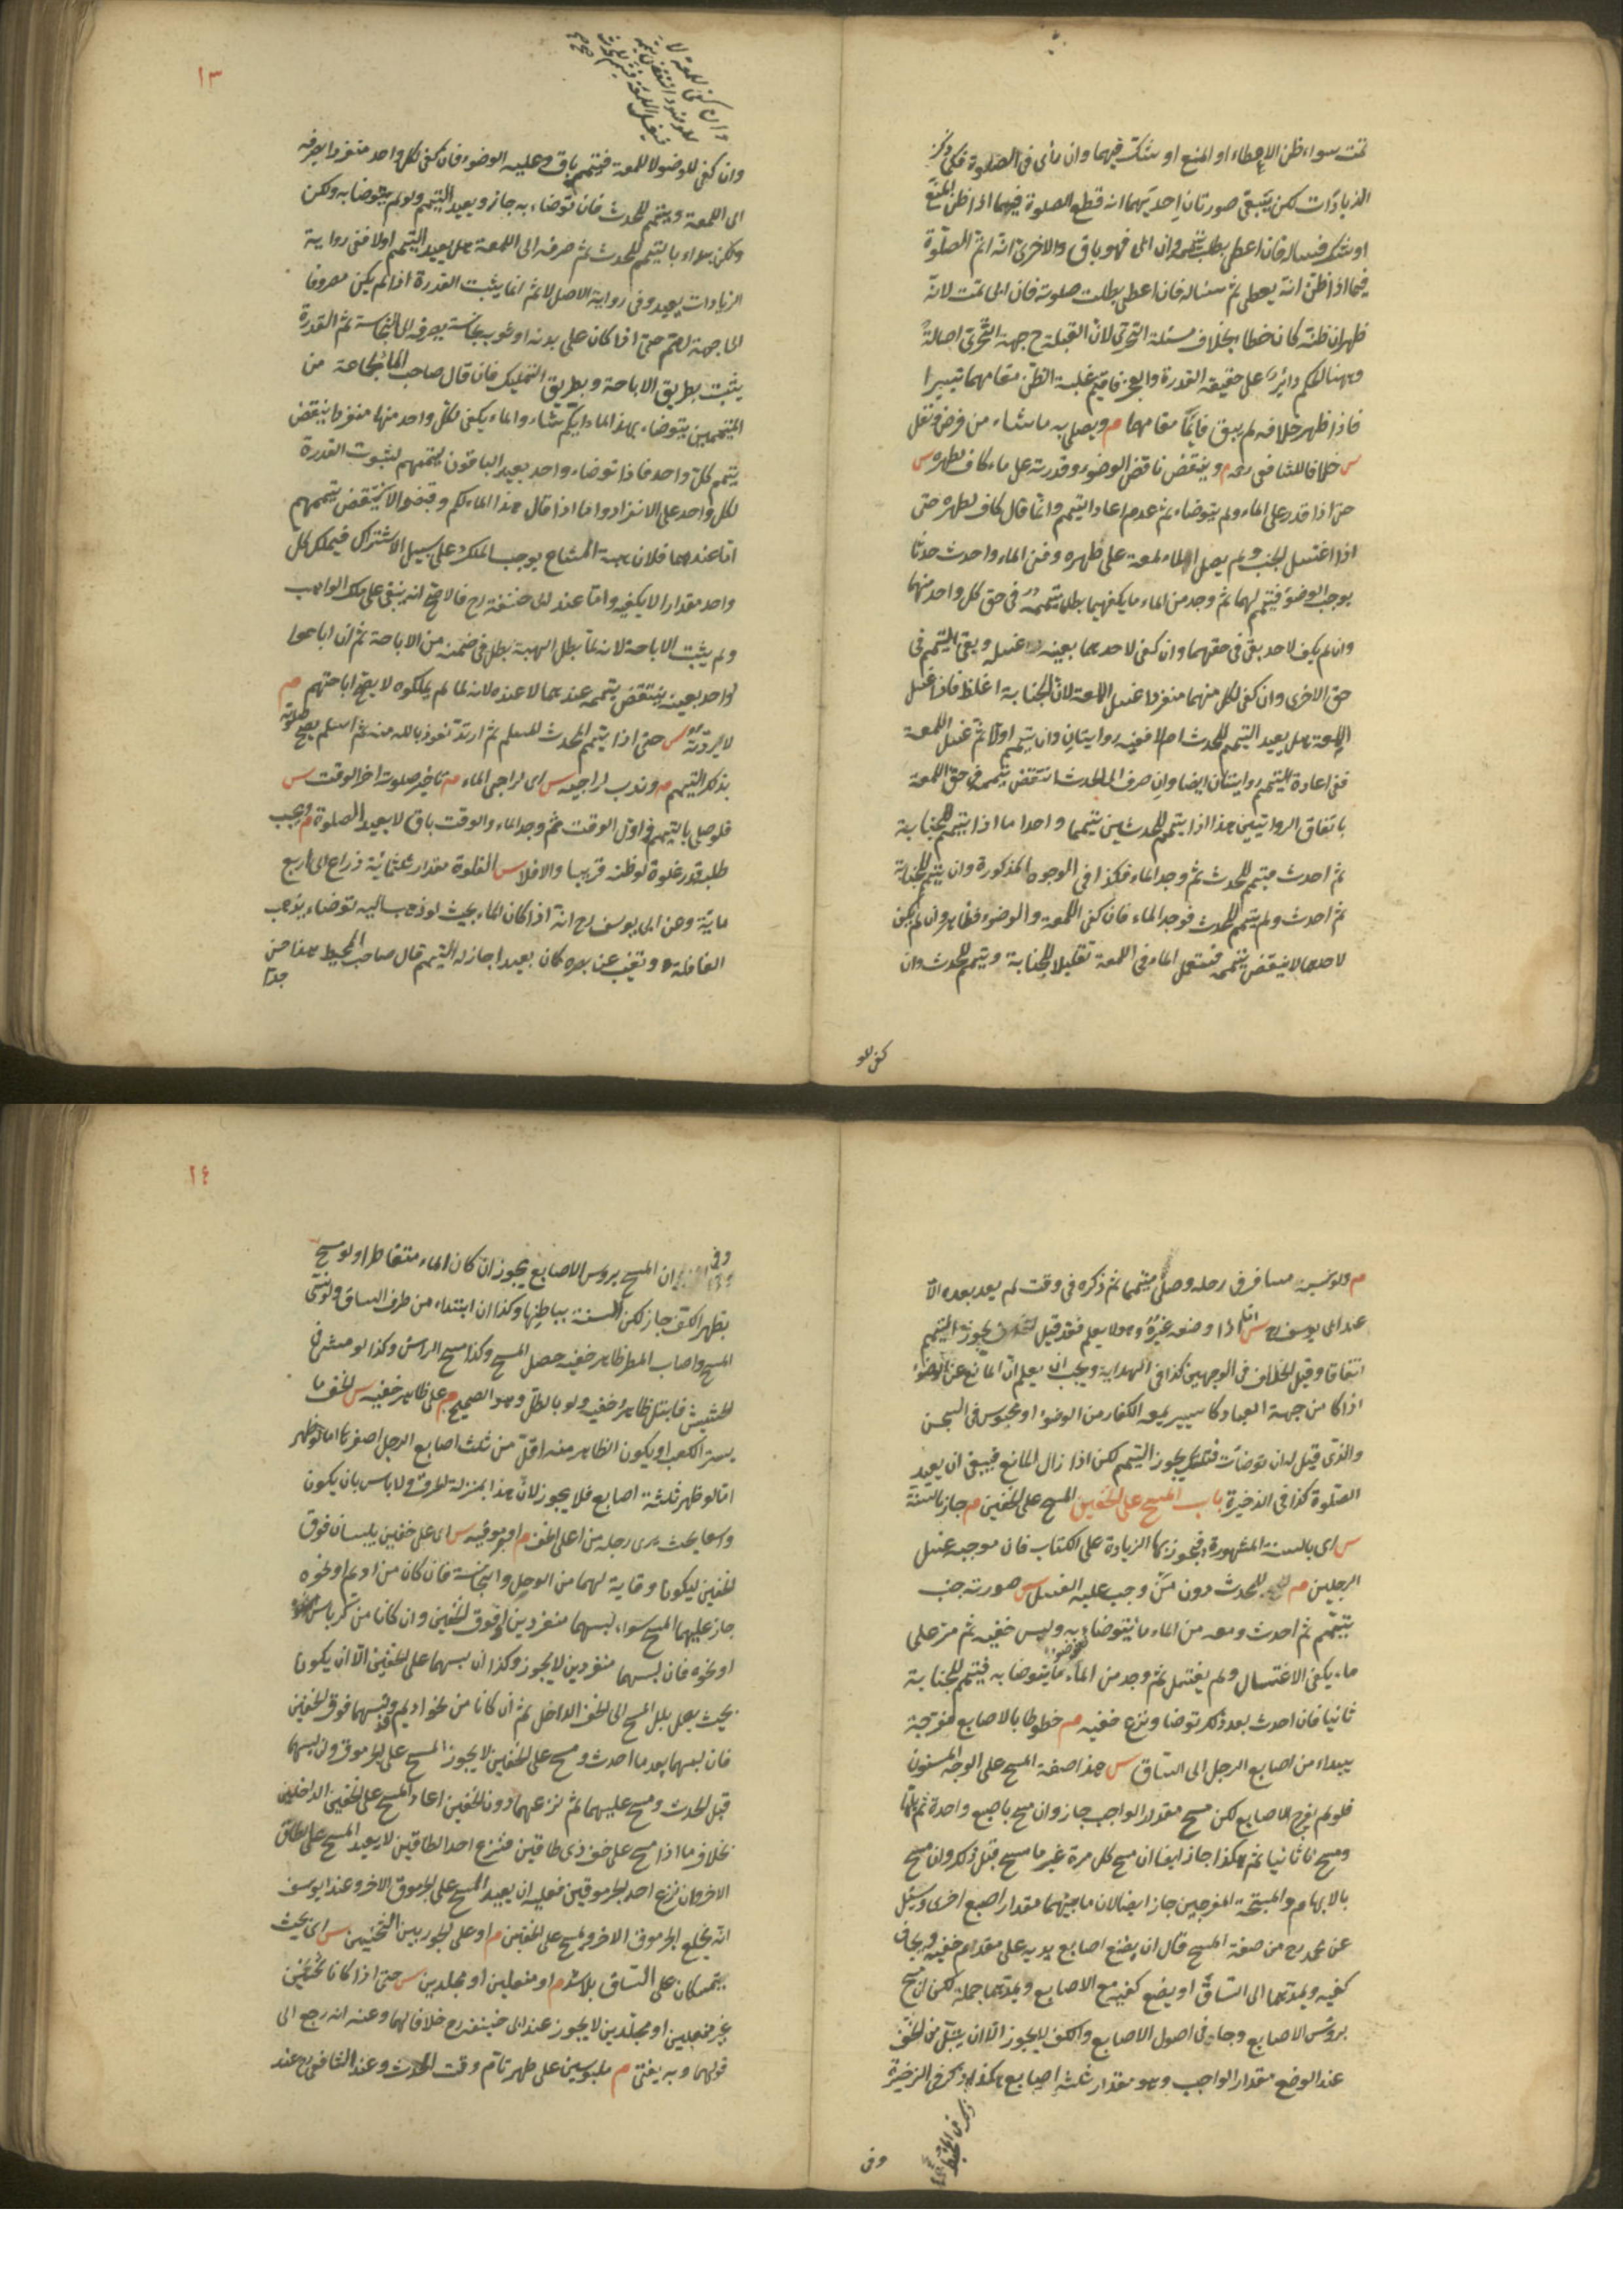 تمت سواء ظن الاعطاء او المنع او شك فيهما وان رأى في الصلوة فكما ذكر
الزيادات لكن يبقى صورتان احديهما انه قطع الصلوة فيهما اذا ظن المنع
او شك فساله فان اعطى بطل تيممه وان ابى فهو باق والاخرى انه اتم الصلوة
فيما اذا ظن انه يعطى ثم سئاله فان اعطى بطلت صلوته فان ابى تمت لانه
ظهر ان ظنه كان خطاء بخلاف مسئلة التحرى لان القبلة ح جهة التحرى اصالة
وههنا الحكم دائر على حقيقة القدرة والعجز فاقيم غلبة الظن مقامهما تيسيرا
فاذا ظهر خلافه لم يبق قائما مقامهما م ويصلى به ما شاء من فرض ونفل
س خلافا للشافعى رحه م وينقضه ناقض الوضوء وقدرته على ماء كاف لطهره س
حتى اذا قدر على الماء ولم يتوضاء ثم عدم اعاد التيمم وانما قال كاف لطهره حتى
اذا اغتسل الجنب ولم يصل الماء لمعة على ظهره وفنى الماء واحدث حدثا
يوجب الوضوء فتيمم لهما ثم وجد من الماء ما يكفيهما بطل تيممه فى حق كل واحد منهما
وان لم يكف لاحد بقى فى حقهما وان كفى لاحدهما بعينه غسله ويبقى التيمم فى
حق الاخرى وان كفى لكل منهما منفردا غسل اللمعة لان الجنابة اغلظ فاذا غسل
اللمعة هل يعيد التيمم للحدث ام لا ففيه روايتان وان تيمم اولا ثم غسل اللمعة
ففى اعادة التيمم روايتان ايضا وان صرف الى الحدث انتقض تيممه فى حق اللمعة
باتفاق الروايتين هذا اذا تيمم للحدثين تيمما واحدا ما اذا تيمم للجنابة
ثم احدث فتيمم للحدث ثم وجد الماء فكذا فى الوجوه المذكورة وان تيمم للجنابة
ثم احدث ولم يتيمم للحدث فوجد الماء فان كفى اللمعة والوضوء فظاهر وان لم يكف
لاحدهما لا ينتقض تيممه فيستعمل الماء فى اللمعة تقليلا للجنابة ويتيمم للحدث وان
كفى للو
١٣
وان كفى للوضوء لا للمعة فتيممه باق وعليه الوضوء فان كفى لكل واحد منفردا يصرفه
الى اللمعة ويتيمم للحدث فان توضاء به جاز ويعيد التيمم ولو لم يتوضا به ولكن
ولكن بداء بالتيمم للحدث ثم صرفه الى اللمعة هل يعيد التيمم اولا ففى رواية
الزيادات يعيد وفى رواية الاصل لا ثم انما يثبت القدرة اذا لم يكن مصروفا
الى جهة اهم حتى اذا كان على بدنه او ثوبه نجاسة يصرفه الى النجاسة ثم القدرة
يثبت بطريق الاباحة وبطريق التمليك فان قال صاحب الماء لجماعة من
المتيممين يتوضاء بهذا الماء ايكم شاء والماء يكفى لكل واحد منها منفردا ينقض
تيمم كل واحد فاذا توضاء واحد يعيد الباقون تيممهم لثبوت القدرة
لكل واحد على الانفراد واما اذا قال هذا الماء لكم وقبضوا لا ينتقض تيممهم
اما عندهما فلان هبة المشاع يوجب الملك على سبيل الاشتراك فيملك كل
واحد مقدارا لا يكفيه واما عند ابى حنيفة رح فالاصح انه يبقى على ملك الواهب
ولم يثبت الاباحة لانه لما بطل الهبة بطل فى ضمنه من الاباحة ثم ان اباحوا
لواحد بعينه ينتقض تيممه عندهما لا عنده لانه لما لم يملكوه لا يصح اباحتهم م
لا ردته س حتى اذا تيمم الحدث المسلم ثم ارتد نعوذ بالله منه ثم اسلم يصح صلوته
بذلك التيمم م وندب لراجيه س اى لراجى الماء م تاخير صلوته اخر الوقت س
فلو صلى بالتيمم فى اول الوقت ثم وجد الماء والوقت باق لا يعيد الصلوة م ويجب
طلبه قدر غلوة لو ظنه قريبا والا فلا س الغلوة مقدار ثلثمائة ذراع الى اربع
مائة وعن ابى يوسف رح انه اذا كان الماء بحيث لو ذهب اليه توضاء يذهب
القافلة وتغيب عن بصره كان بعيدا جاز له التيمم قال صاحب المحيط هذا حسن
جدا
م ولو نسيه مسافر فى رحله وصلى متيمما ثم ذكره فى وقت لم يعد بعده الا
عند ابى يوسف رح س اى اذا وضعه غيره وهو لا يعلم فقد قيل يجوز التيمم
اتفاقا وقيل الخلاف فى الوجهين كذا فى الهداية ويجب ان يعلم ان المانع عن الوضوء
اذا كان من جهة العباد كاسير يمنعه الكفار من الوضوء او محبوس فى السجن
والذى قيل له ان توضات قتلتك يجوز التيمم لكن اذا زال المانع فينبغى ان يعيد
الصلوة كذا فى الذخيرة باب المسح على الخفين المسح على الخفين م جاز بالسنة
س اى بالسنة المشهورة فيجوز بها الزيادة على الكتاب فان موجبه غسل
الرجلين م للمحدث دون من وجب عليه الغسل س صورته جنب
تيمم ثم احدث ومعه من الماء ما يتوضاء به ولبس خفيه ثم مر على
ماء يكفى الاغتسال ولم يغتسل ثم وجد من الماء ما يتوضا به فتيمم للجنابة
ثانيا فان احدث بعد ذلك توضا ونزع خفيه م خطوطا بالاصابع منفرجة
يبداء من اصابع الرجل الى الساق س هذا صفة المسح على الوجه المسنون
فلو لم يفرج الاصابع لكن مسح مقدار الواجب جاز وان مسح باصبع واحدة ثم بلها
ومسح ثانيا ثم هكذا جاز ايضا ان مسح كل مرة غير ما مسح قبل ذلك وان مسح
بالابهام والمسبحة المنفرجين جاز ايضا لان ما بينهما مقدار اصبع اخرى وسئل
عن محمد رح من صفة المسح قال ان يضع اصابع يديه على مقدم خفيه ويجافى
كفيه ويمدهما الى الساق او يضع كفيه مع الاصابع ويمدهما جملة لكن ان مسح
برؤس الاصابع وجافى اصول الاصابع والكف لا يجوز الا ان يبتل من الخف
عند الوضع مقدار الواجب وهو مقدار ثلثه اصابع هكذا ذكر فى الذخيرة
وفى
١٤
ان المسح بروس الاصابع يجوز ان كان الماء متقاطرا ولو مسح
بظهر الكف جاز لكن السنة بباطنها وكذا ان ابتداء من طرف الساق ولو نسى
المسح واصاب المطر ظاهر خفيه حصل المسح وكذا مسح الراس وكذا لو مشى فى
الحشيش فابتل ظاهر خفيه ولو بالطل وهو الصحيح م على ظاهر خفيه س الخف ما
يستر الكعب او يكون الظاهر منه اقل من ثلث اصابع الرجل اصغرها اما لو ظهر
اما لو ظهر ثلثة اصابع فلا يجوز لان هذا بمنزلة الخرق ولا باس بان يكون
واسعا بحيث يرى رجله من اعلى الخف م او جرموقيه س اى على خفين يلبسان فوق
الخفين ليكونا وقاية لهما من الوحل والنجاسة فان كان من اديم او نحوه
جاز عليهما المسح سواء لبسهما منفردين او فوق الخفين وان كانا من كرباس
او نحوه فان لبسهما منفردين لا يجوز وكذا ان لبسهما على الخفين الا ان يكونا
بحيث يصل بلل المسح الى الخف الداخل ثم ان كانا من نحو اديم ولبسهما فوق الخفين
فان لبسهما بعد ما احدث ومسح على الخفين لا يجوز المسح على الجرموق وان لبسهما
قبل الحدث ومسح عليهما ثم نزعهما دون الخفين اعاد المسح على الخفين الداخلين
بخلاف ما اذا مسح على خف ذى طاقين فنزع احد الطاقين لا يعيد المسح على الطاق
الاخر وان نزع احد الجرموقين فعليه ان يعيد المسح على الجرموق الاخر وعند ابو يوسف
انه يخلع الجرموق الاخر ويمسح على الخفين م او على الجوربين الثخينين س اى بحيث
يتمسكان على الساق بلا شد م او منعلين او مجلدين س حتى اذا كانا ثخينين
غير منعلين او مجلدين لا يجوز عند ابى حنيفة رح خلافا لهما وعنه انه رجع الى
قولهما وبه يفتى م ملبوسين على طهر تام وقت الحدث وعند الشافعى رح عند